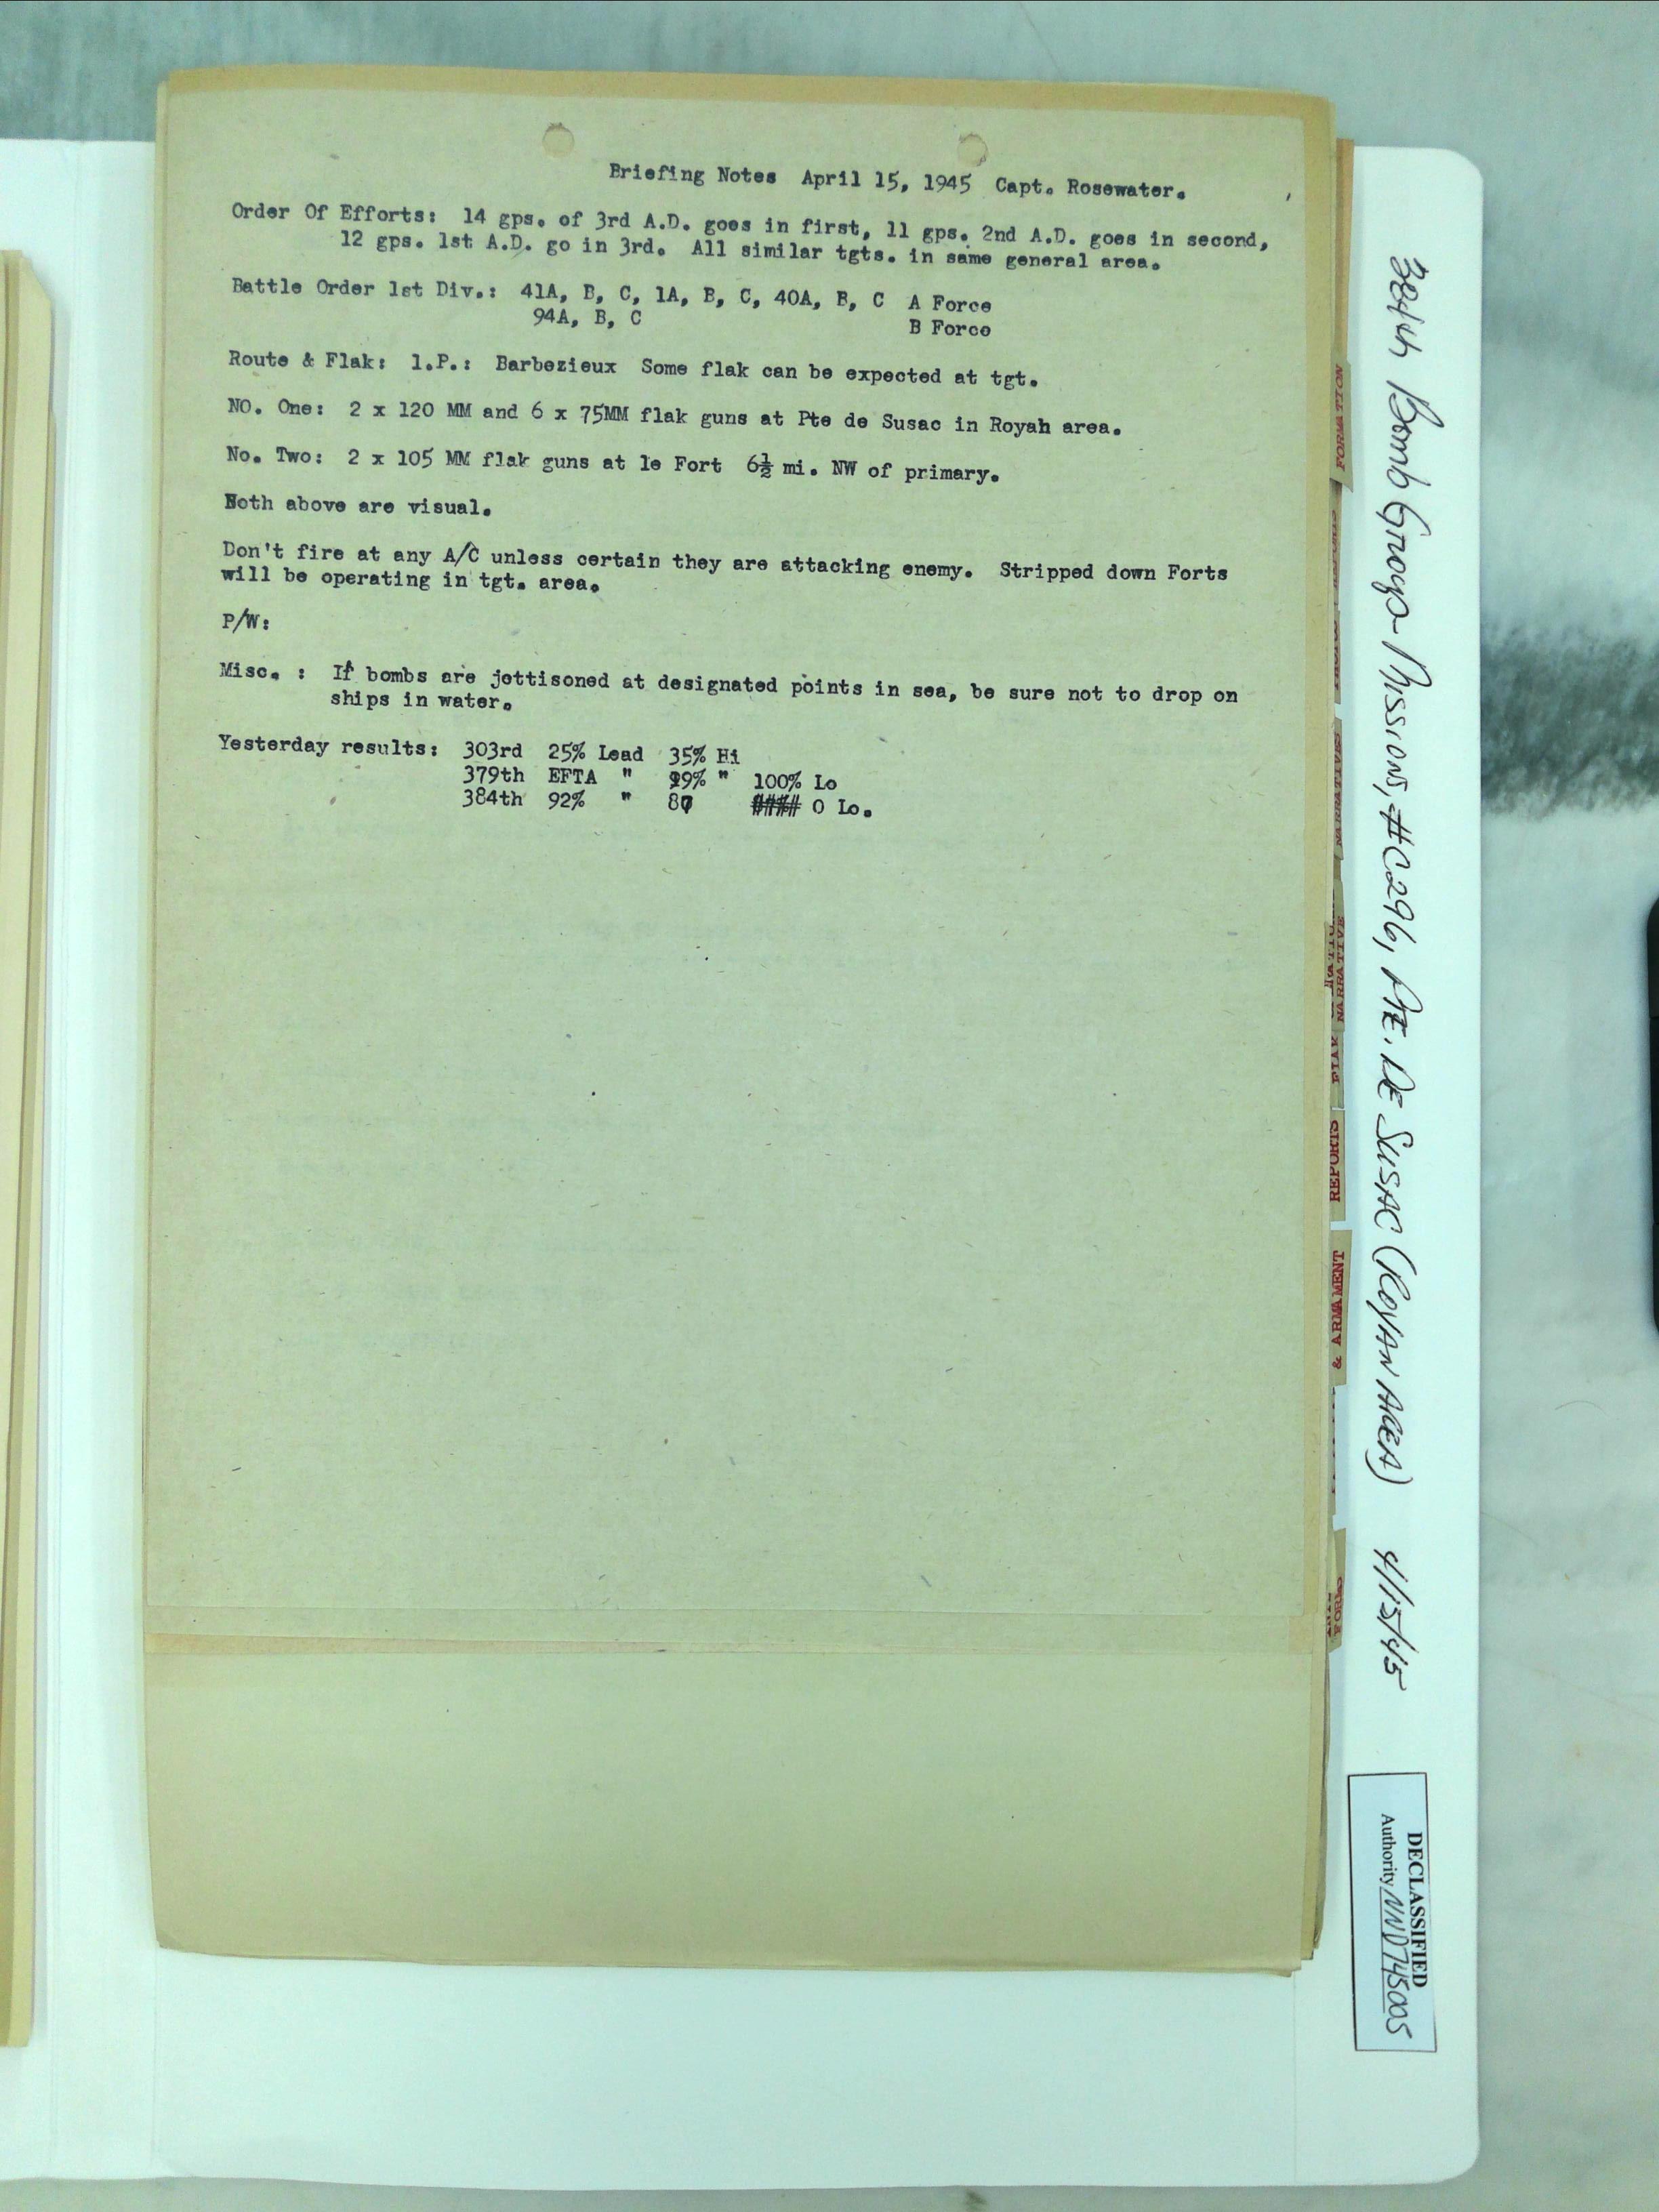 Briefing Notes April 15, 1945 Capt. Rosewater.
Order Of Efforts: 14 gps. of 3rd A.D. goes in first, 11 gps. 2nd A.D. goes in second,
12 gps. 1st A.D. go in 3rd. All similar tgts. in same general area.
Battle Order 1st Div.: 41A, B, C, 1A, B, C, 40A, B, C A Force
94A, B, C B Force
Route & Flak: 1.P.: Barbezieux Some flak can be expected at tgt.
NO. One: 2 x 120 MM and 6 x 75MM flak guns at Pte de Susac in Royan area.
No. Two: 2 x 105 MM flak guns at le Fort 6½ mi. NW of primary.
Both above are visual.
Don't fire at any A/C unless certain they are attacking enemy. Stripped down Forts
will be operating in tgt. area.
P/W:
Misc. : If bombs are jettisoned at designated points in sea, be sure not to drop on
ships in water.
Yesterday results: 303rd 25% Lead 35% Hi
379th EFTA " 99% " 100% Lo
384th 92% " 87 #### 0 Lo.
384th Bomb Group Missions, #C296, Pte. De Susac (Royan Area) 4/15/45
DECLASSIFIED
Authority NND745005
FORMATION
NARRATIVES
NARRATIVE
FLAK
REPORTS
& ARMAMENT
FORMS